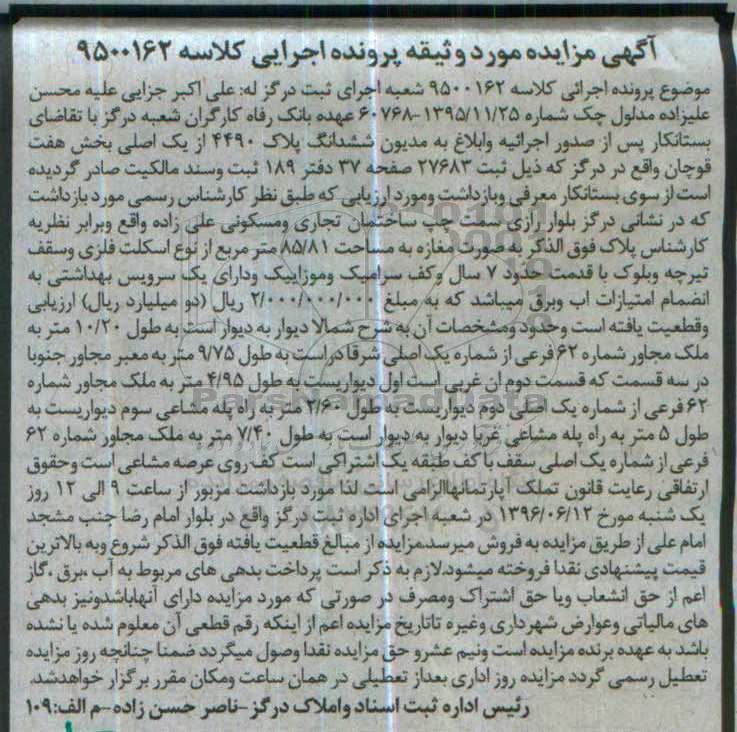 آگهی مزایده مورد وثیقه پرونده اجرایی کلاسه ۹۵۰۰۱۶۲
موضوع پرونده اجرائی کلاسه ۹۵۰۰۱۶۲ شعبه اجرای ثبت درگز له: علی اکبر جزایی علیه محسن
علیزاده مدلول چک شماره ۱۳۹۵/۱۱/۲۵-۶۰۷۶۸ عهده بانک رفاه کارگران شعبه درگز با تقاضای
بستانکار پس از صدور اجرائیه وابلاغ به مدیون ششدانگ پلاک ۴۴۹۰ از یک اصلی بخش هفت
قوچان واقع در درگز که ذیل ثبت ۲۷۶۸۳ صفحه ۳۷ دفتر ۱۸۹ ثبت وسند مالکیت صادر گردیده
است از سوی بستانکار معرفی وبازداشت ومورد ارزیابی که طبق نظر کارشناس رسمی مورد بازداشت
که در نشانی درگز بلوار رازی سمت چپ ساختمان تجاری ومسکونی علی زاده واقع وبرابر نظریه
کارشناس پلاک فوق الذکر به صورت مغازه به مساحت ۸۵/۸۱ متر مربع از نوع اسکلت فلزی وسقف
تیرچه وبلوک با قدمت حدود ۷ سال وکف سرامیک وموزاییک ودارای یک سرویس بهداشتی به
انضمام امتیازات اب وبرق میباشد که به مبلغ ۲/۰۰۰/۰۰۰/۰۰۰ ریال (دو میلیارد ریال) ارزیابی
وقطعیت یافته است وحدود ومشخصات آن به شرح شمالا دیوار به دیوار است به طول ۱۰/۲۰ متر به
ملک مجاور شماره ۶۲ فرعی از شماره یک اصلی شرقا در است به طول ۹/۷۵ متر به معبر مجاور جنوبا
در سه قسمت که قسمت دوم ان غربی است اول دیواریست به طول ۴/۹۵ متر به ملک مجاور شماره
۶۲ فرعی از شماره یک اصلی دوم دیواریست به طول ۲/۶۰ متر به راه پله مشاعی سوم دیواریست به
طول ۵ متر به راه پله مشاعی غربا دیوار به دیوار است به طول ۷/۴۰ متر به ملک مجاور شماره ۶۲
فرعی از شماره یک اصلی سقف با کف طبقه یک اشتراکی است کف روی عرصه مشاعی است وحقوق
ارتفاقی رعایت قانون تملک آپارتمانهاالزامی است لذا مورد بازداشت مزبور از ساعت ۹ الی ۱۲ روز
یک شنبه مورخ ۱۳۹۶/۰۶/۱۲ در شعبه اجرای اداره ثبت درگز واقع در بلوار امام رضا جنب مشجد
امام علی از طریق مزایده به فروش میرسد.مزایده از مبالغ قطعیت یافته فوق الذکر شروع وبه بالاترین
قیمت پیشنهادی نقدا فروخته میشود.لازم به ذکر است پرداخت بدهی های مربوط به آب ،برق ،گاز
اعم از حق انشعاب ویا حق اشتراک ومصرف در صورتی که مورد مزایده دارای آنهاباشدونیز بدهی
های مالیاتی وعوارض شهرداری وغیره تاتاریخ مزایده اعم از اینکه رقم قطعی آن معلوم شده یا نشده
باشد به عهده برنده مزایده است ونیم عشرو حق مزایده نقدا وصول میگردد ضمنا چنانچه روز مزایده
تعطیل رسمی گردد مزایده روز اداری بعداز تعطیلی در همان ساعت ومکان مقرر برگزار خواهدشد.
رئیس اداره ثبت اسناد واملاک درگز -ناصر حسن زاده-م الف:۱۰۹
ParsNamadData